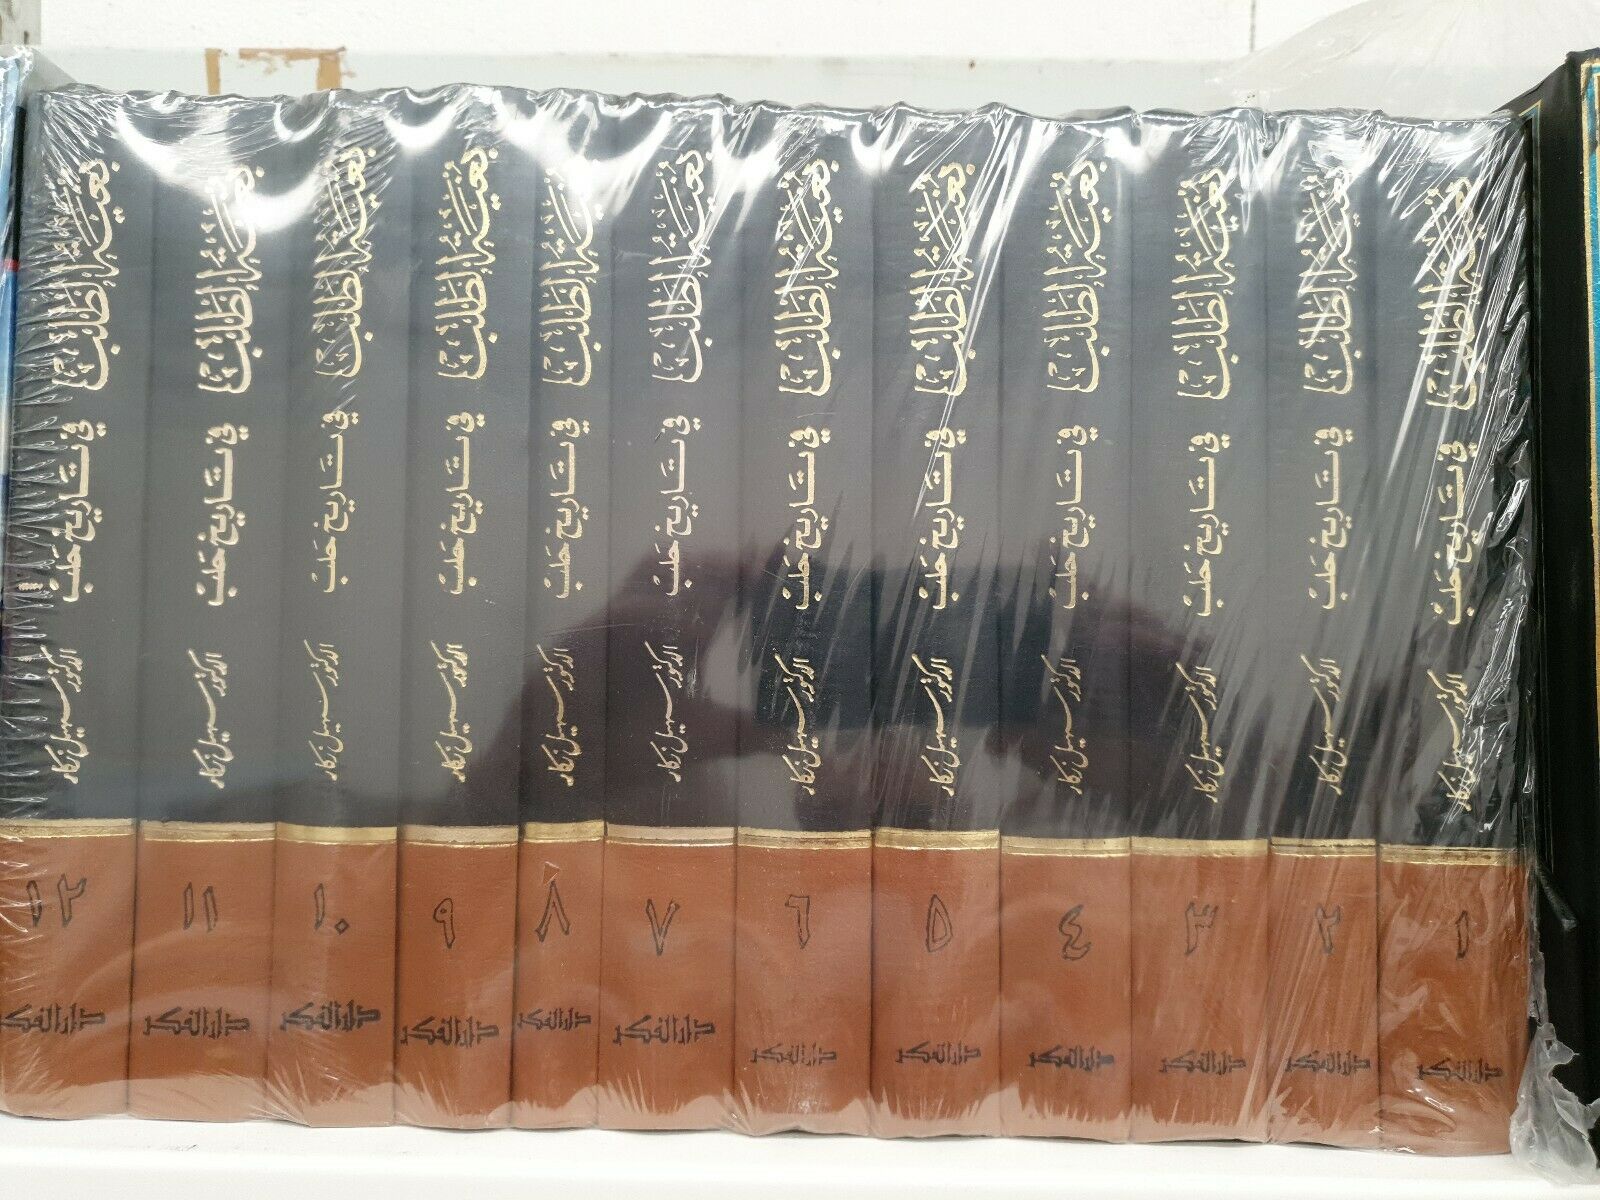 بغية الطلب
في تاريخ حلب
الدكتور سهيل زكار
١
دار الفكر
بغية الطلب
في تاريخ حلب
الدكتور سهيل زكار
٢
دار الفكر
بغية الطلب
في تاريخ حلب
الدكتور سهيل زكار
٣
دار الفكر
بغية الطلب
في تاريخ حلب
الدكتور سهيل زكار
٤
دار الفكر
بغية الطلب
في تاريخ حلب
الدكتور سهيل زكار
٥
دار الفكر
بغية الطلب
في تاريخ حلب
الدكتور سهيل زكار
٦
دار الفكر
بغية الطلب
في تاريخ حلب
الدكتور سهيل زكار
٧
دار الفكر
بغية الطلب
في تاريخ حلب
الدكتور سهيل زكار
٨
دار الفكر
بغية الطلب
في تاريخ حلب
الدكتور سهيل زكار
٩
دار الفكر
بغية الطلب
في تاريخ حلب
الدكتور سهيل زكار
١٠
دار الفكر
بغية الطلب
في تاريخ حلب
الدكتور سهيل زكار
١١
دار الفكر
بغية الطلب
في تاريخ حلب
الدكتور سهيل زكار
١٢
دار الفكر